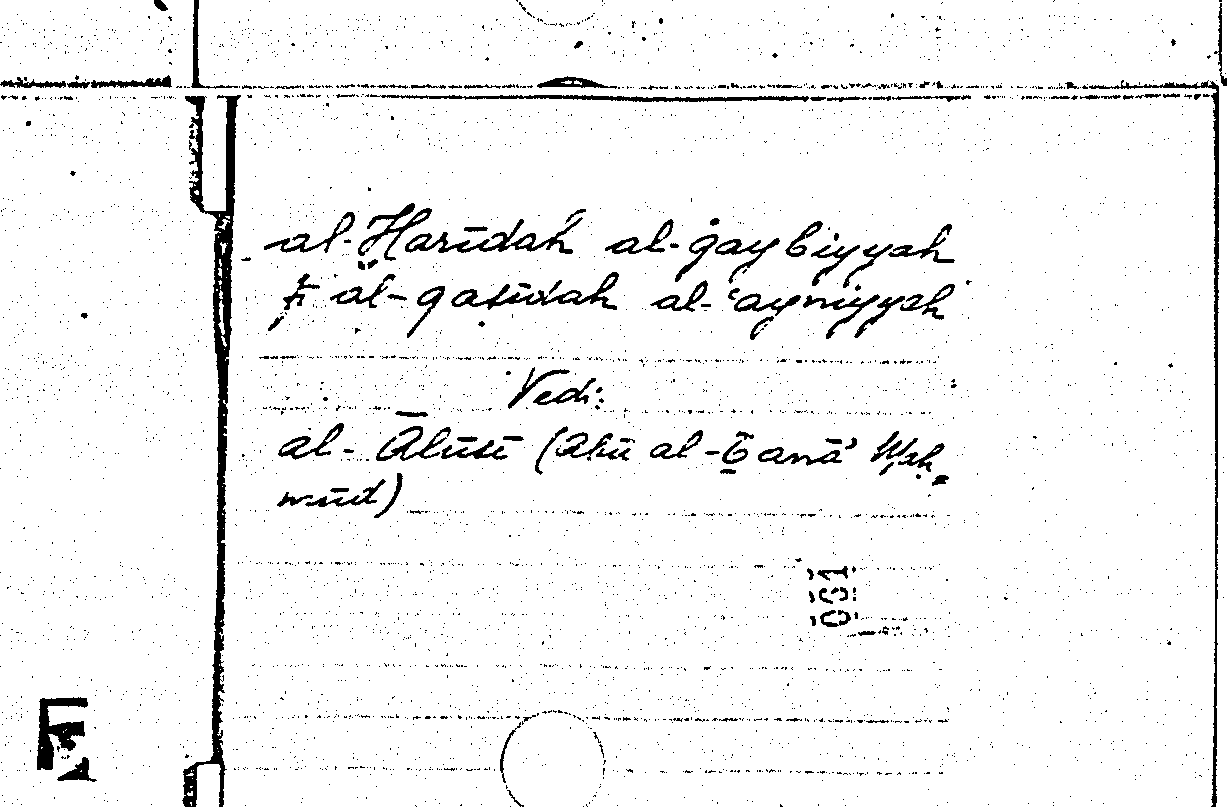 al-Ḫarīdah al-ġaybiyyah
fī al-qaṣīdah al-ʿayniyyah
Vedi:
al-Ālūsī (Abū al-Ṯanāʾ Maḥ=
mūd)
061